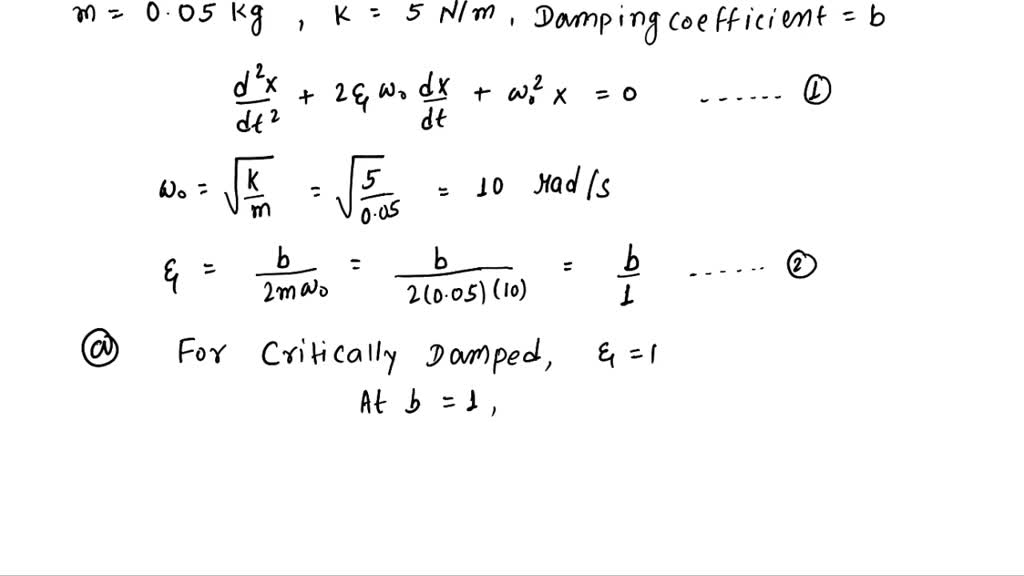 m = 0.05 kg , K = 5 N/m , Damping coefficient = b
d²x/dt² + 2ξ ω₀ dx/dt + ω₀² x = 0 ...... ①
ω₀ = √(K/m) = √(5/0.05) = 10 rad/s
ξ = b/(2mω₀) = b/(2(0.05)(10)) = b/1 ...... ②
ⓐ For Critically Damped, ξ = 1
At b = 1,